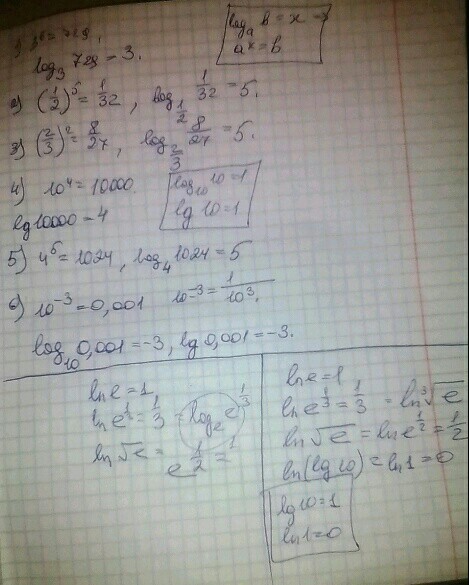 log_a b = x →
a^x = b
1) 3^6 = 729,
log_3 729 = 3.
2) (1/2)^5 = 1/32, log_{1/2} 1/32 = 5.
3) (2/3)^2 = 8/27, log_{2/3} 8/27 = 5.
4) 10^4 = 10000
log_10 10 = 1
lg 10000 = 4
lg 10 = 1
5) 4^5 = 1024, log_4 1024 = 5
6) 10^{-3} = 0,001 10^{-3} = 1/10^3.
log_10 0,001 = -3, lg 0,001 = -3.
ln e = 1
ln e^{1/3} = 1/3 = log_e e^{1/3}
ln √e = e^{1/2} = 1
ln e = 1
ln e^{1/3} = 1/3 = ln ∛e
ln √e = ln e^{1/2} = 1/2
ln(lg 10) = ln 1 = 0
lg 10 = 1
ln 1 = 0